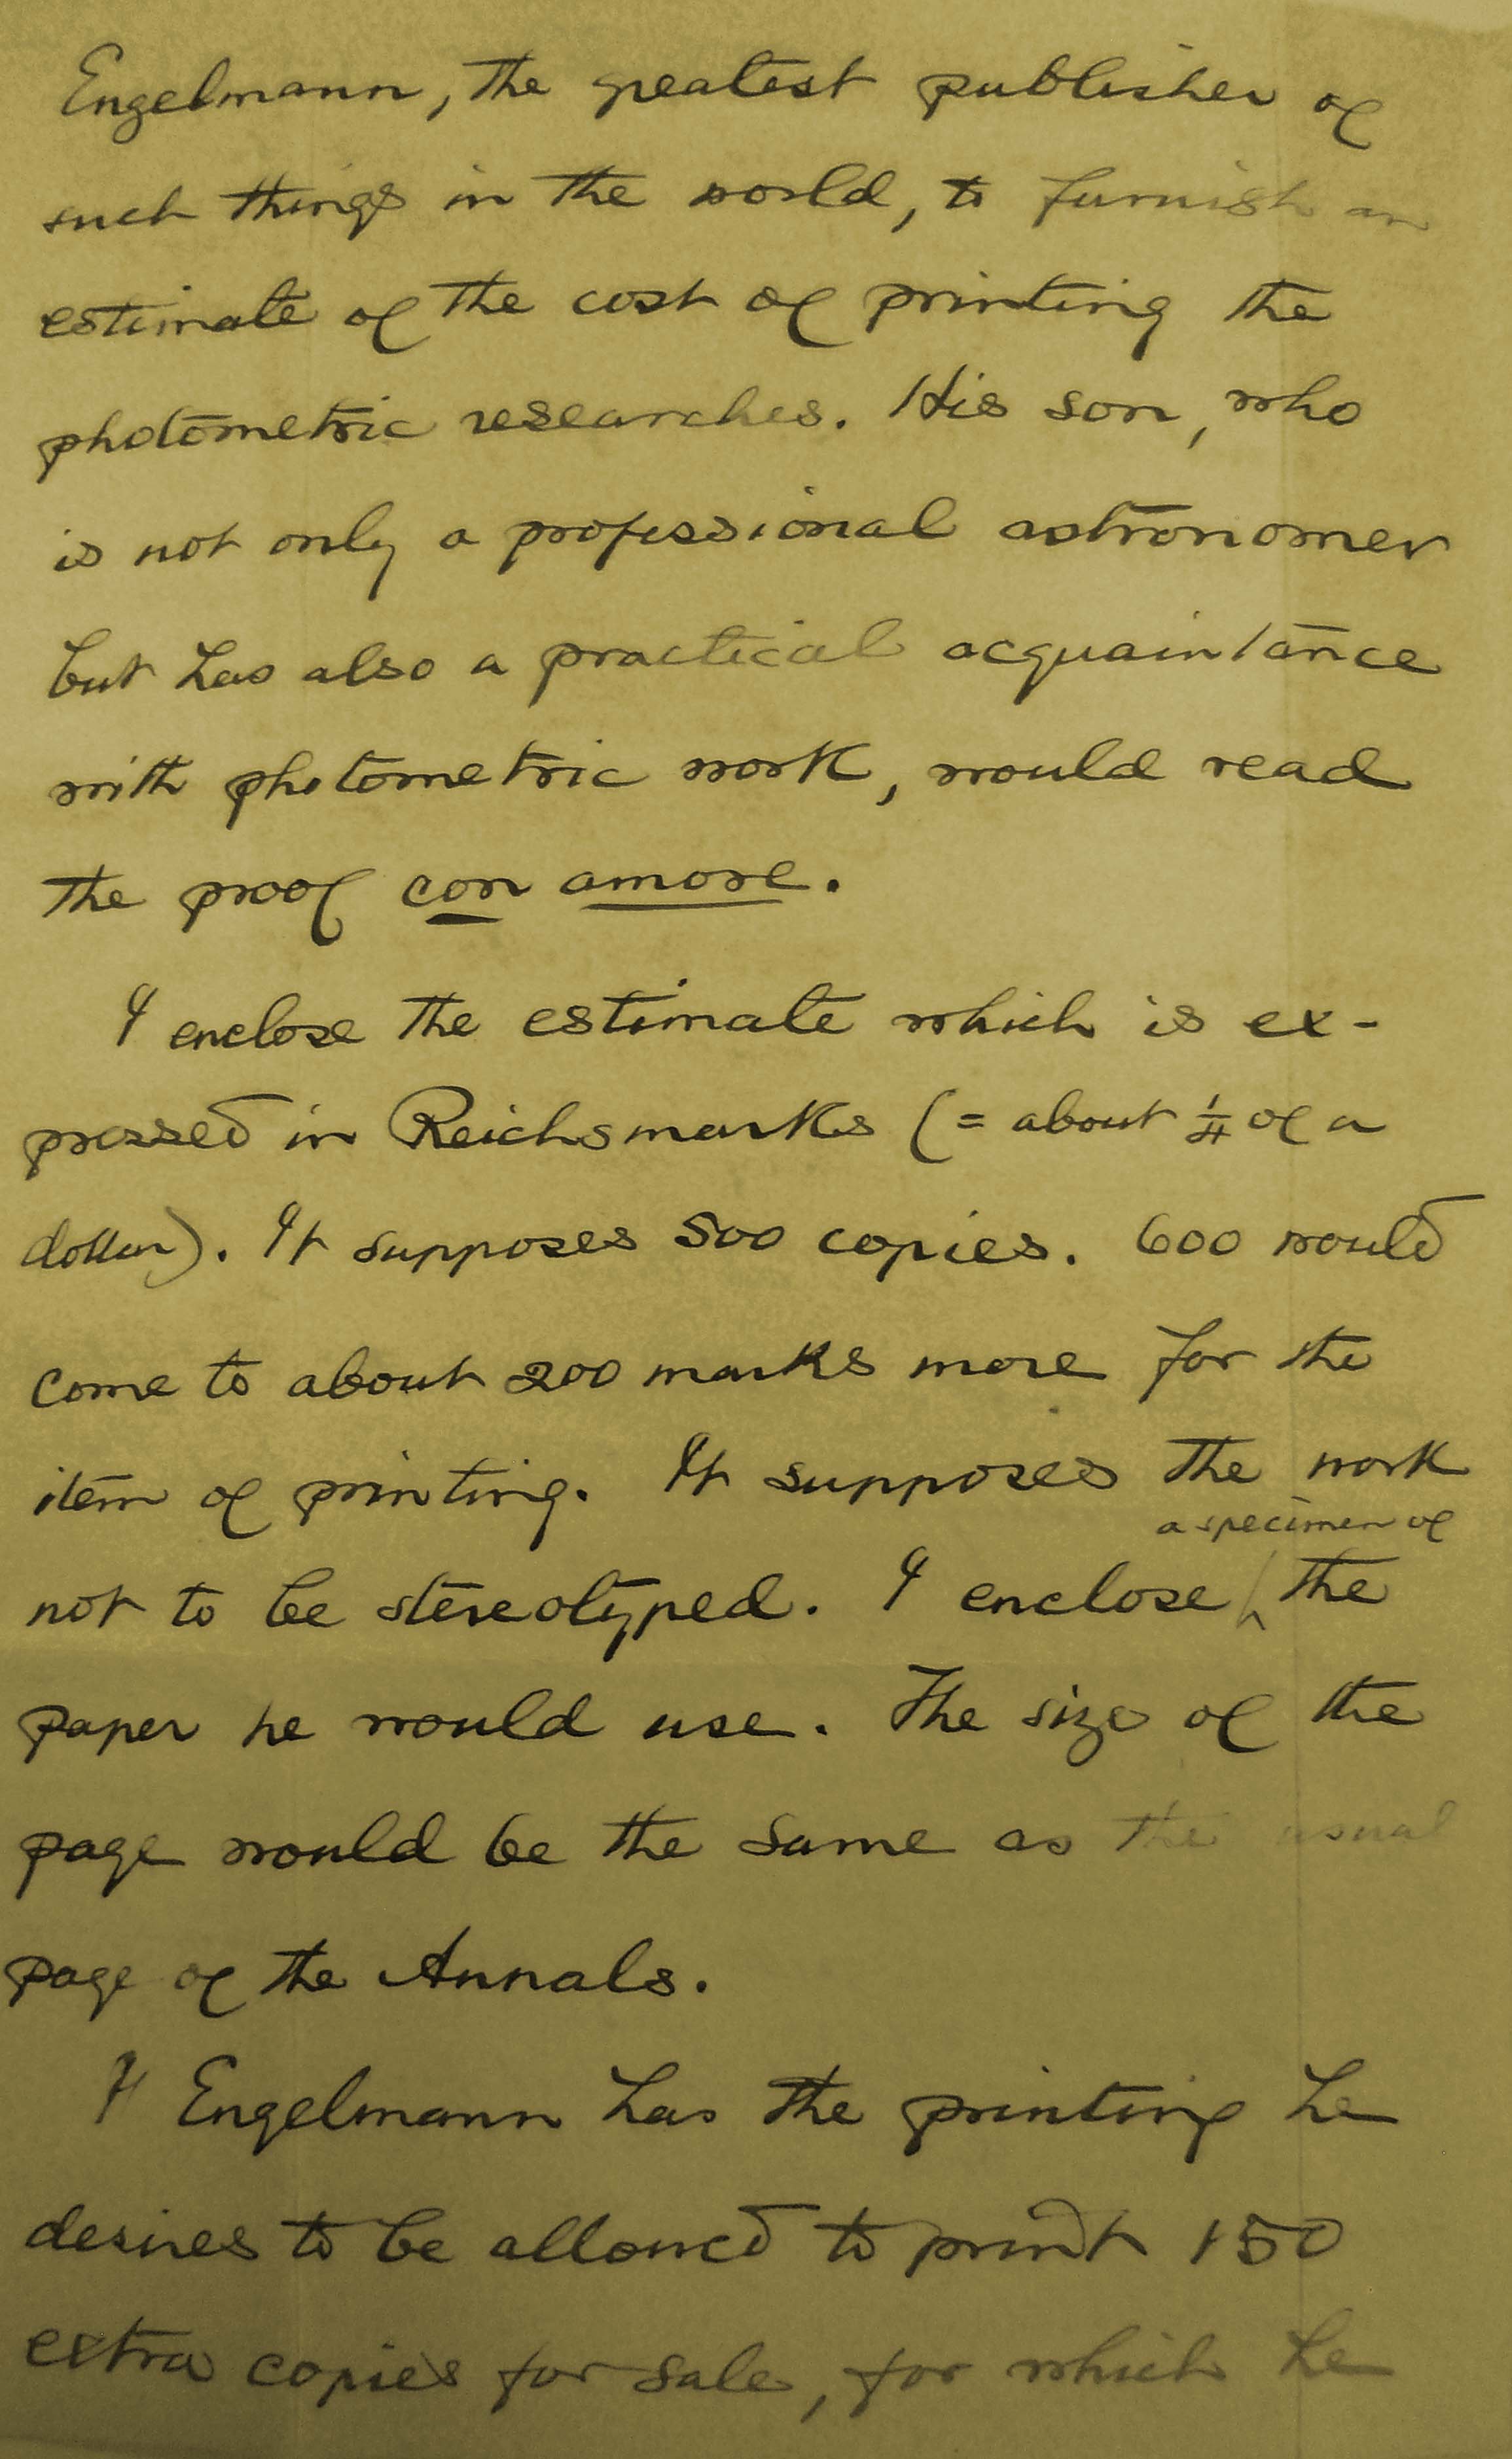 Engelmann, the greatest publisher of
such things in the world, to furnish an
estimate of the cost of printing the
photometric researches. His son, who
is not only a professional astronomer
but has also a practical acquaintance
with photometric work, would read
the proof con amore.
I enclose the estimate which is ex-
pressed in Reichsmarks (= about 1/4 of a
dollar). It supposes 500 copies. 600 would
come to about 200 marks more for the
item of printing. It supposes the work
a specimen of
not to be stereotyped. I enclose ^ the
paper he would use. The size of the
page would be the same as the usual
page of the Annals.
If Engelmann has the printing he
desires to be allowed to print 150
extra copies for sale, for which he